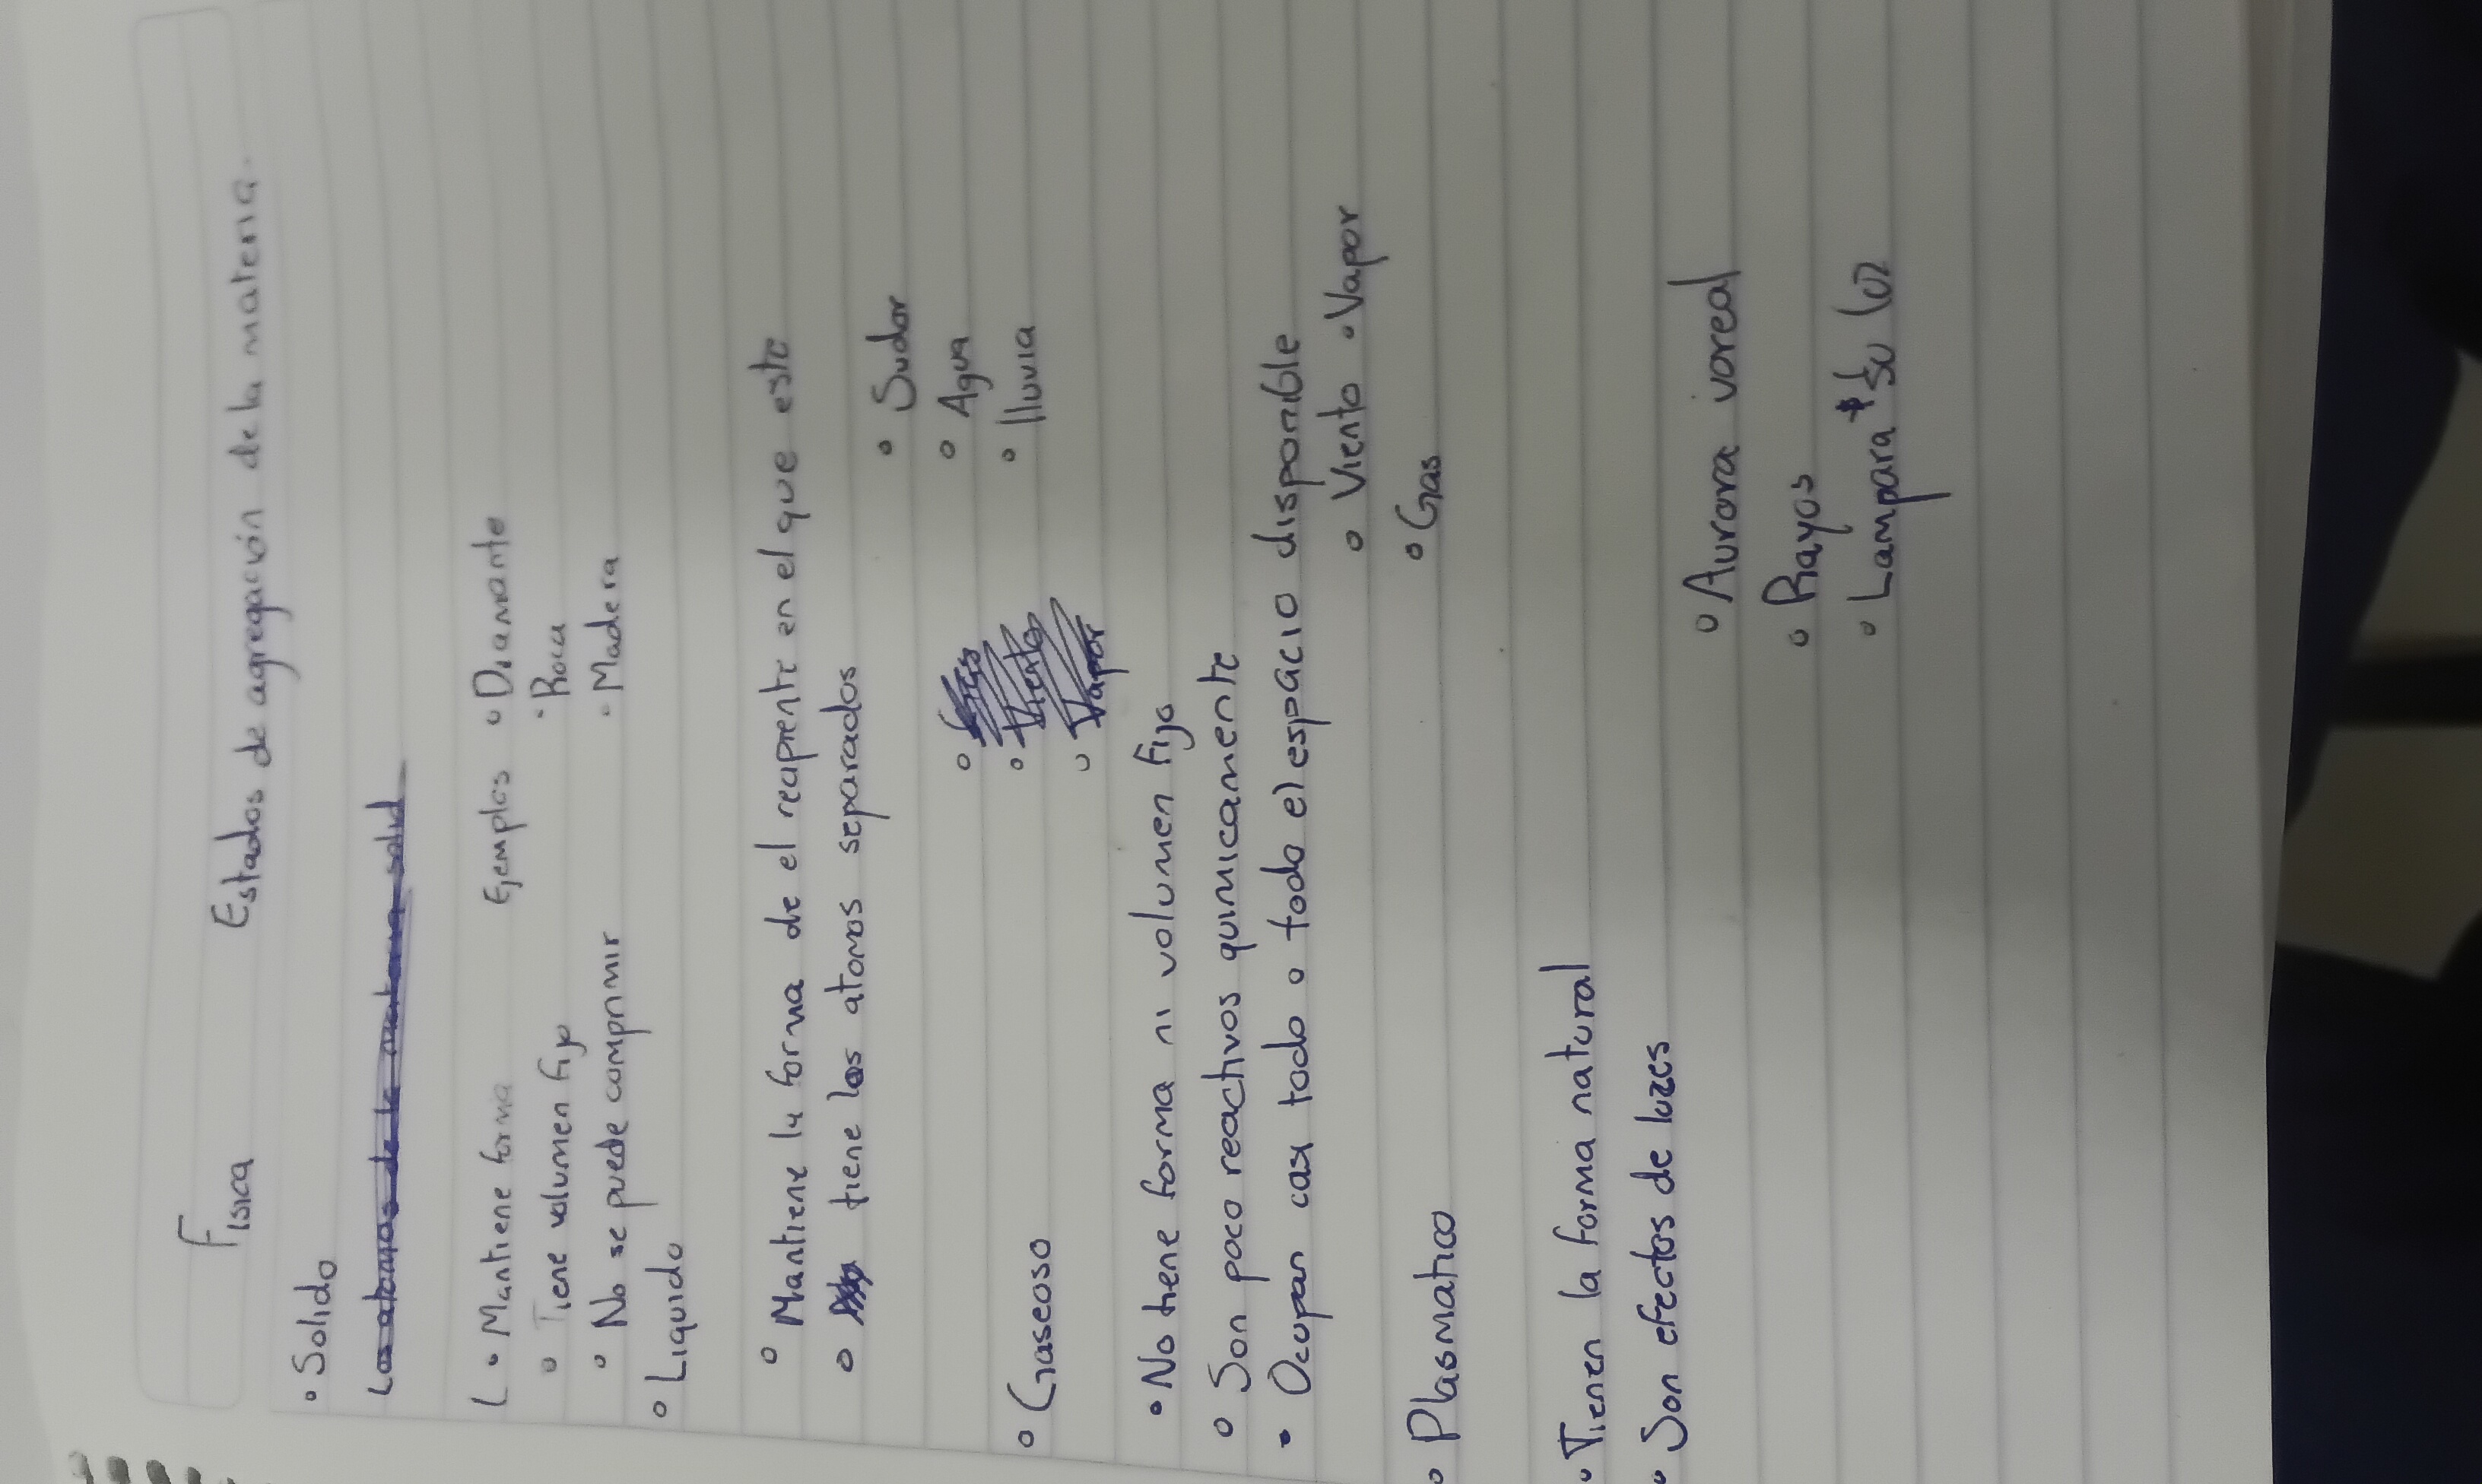 Fisica Estados de agregación de la materia.
• Solido
Los atomos de la materia solid
• Mantiene forma Ejemplos • Diamante
• Tiene volumen fijo • Roca
• No se puede comprimir • Madera
• Liquido
• Mantiene la forma de el recipiente en el que este
• tiene los atomos separados
• Sudor
• Gas • Agua
• Viento • lluvia
• Vapor
• Gaseoso
• No tiene forma ni volumen fijo
• Son poco reactivos quimicamente
• Ocupan casi todo o todo el espacio disponible
• Viento • Vapor
• Gas
• Plasmatico
• Tienen la forma natural
• Son efectos de luzes
• Aurora voreal
• Rayos
• Lampara su luz